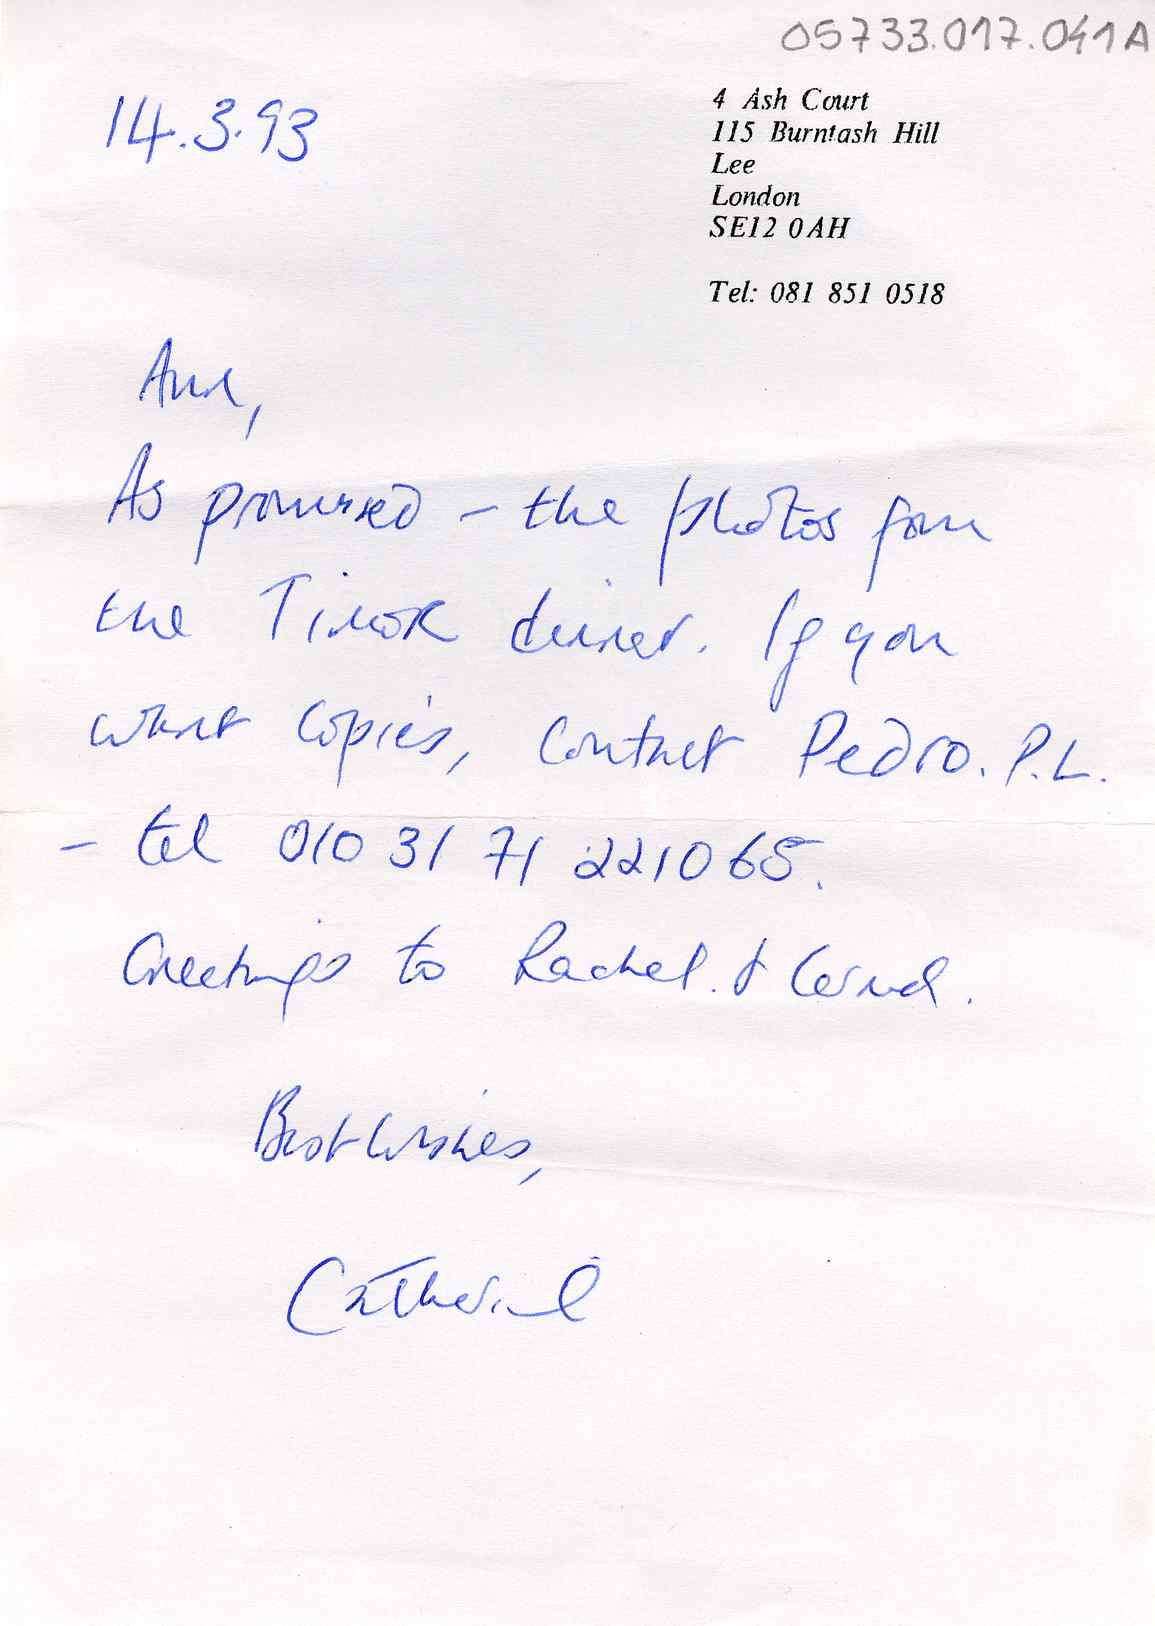 05733.017.041A
14.3.93
4 Ash Court
115 Burntash Hill
Lee
London
SE12 0AH
Tel: 081 851 0518
Ann,
As promised - the photos from
the Timor dinner. If you
want copies, contact Pedro. P.L.
- tel 010 31 71 221065.
Greetings to Rachel. &
Best wishes,
Catherine